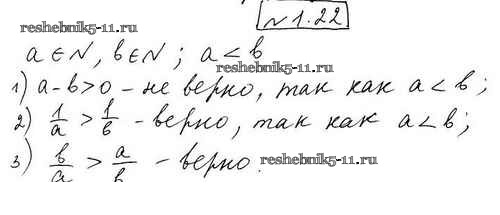 №1.22
reshebnik5-11.ru
a ∈ N, b ∈ N; a < b
reshebnik5-11.ru
1) a - b > 0 - не верно, так как a < b;
2) 1/a > 1/b - верно, так как a < b;
3) b/a > a/b - верно. reshebnik5-11.ru